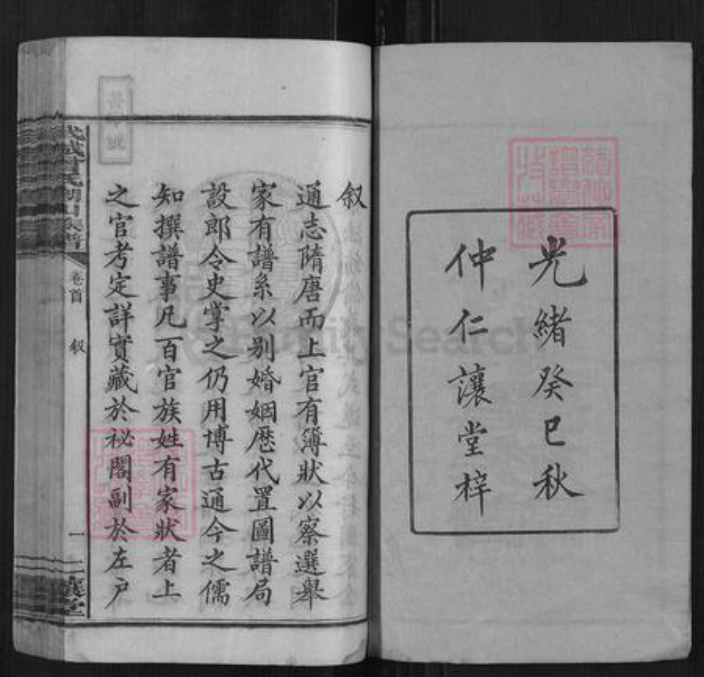 光緒癸巳秋
仲仁讓堂梓
叙
通志隋唐而上官有簿狀以察選舉
家有譜系以别婚姻歷代置圖譜局
設郎令史掌之仍用博古通今之儒
知撰譜事凡百官族姓有家狀者上
之官考定詳實藏於祕閣副於左户
卷首 叙
一
FamilySearch